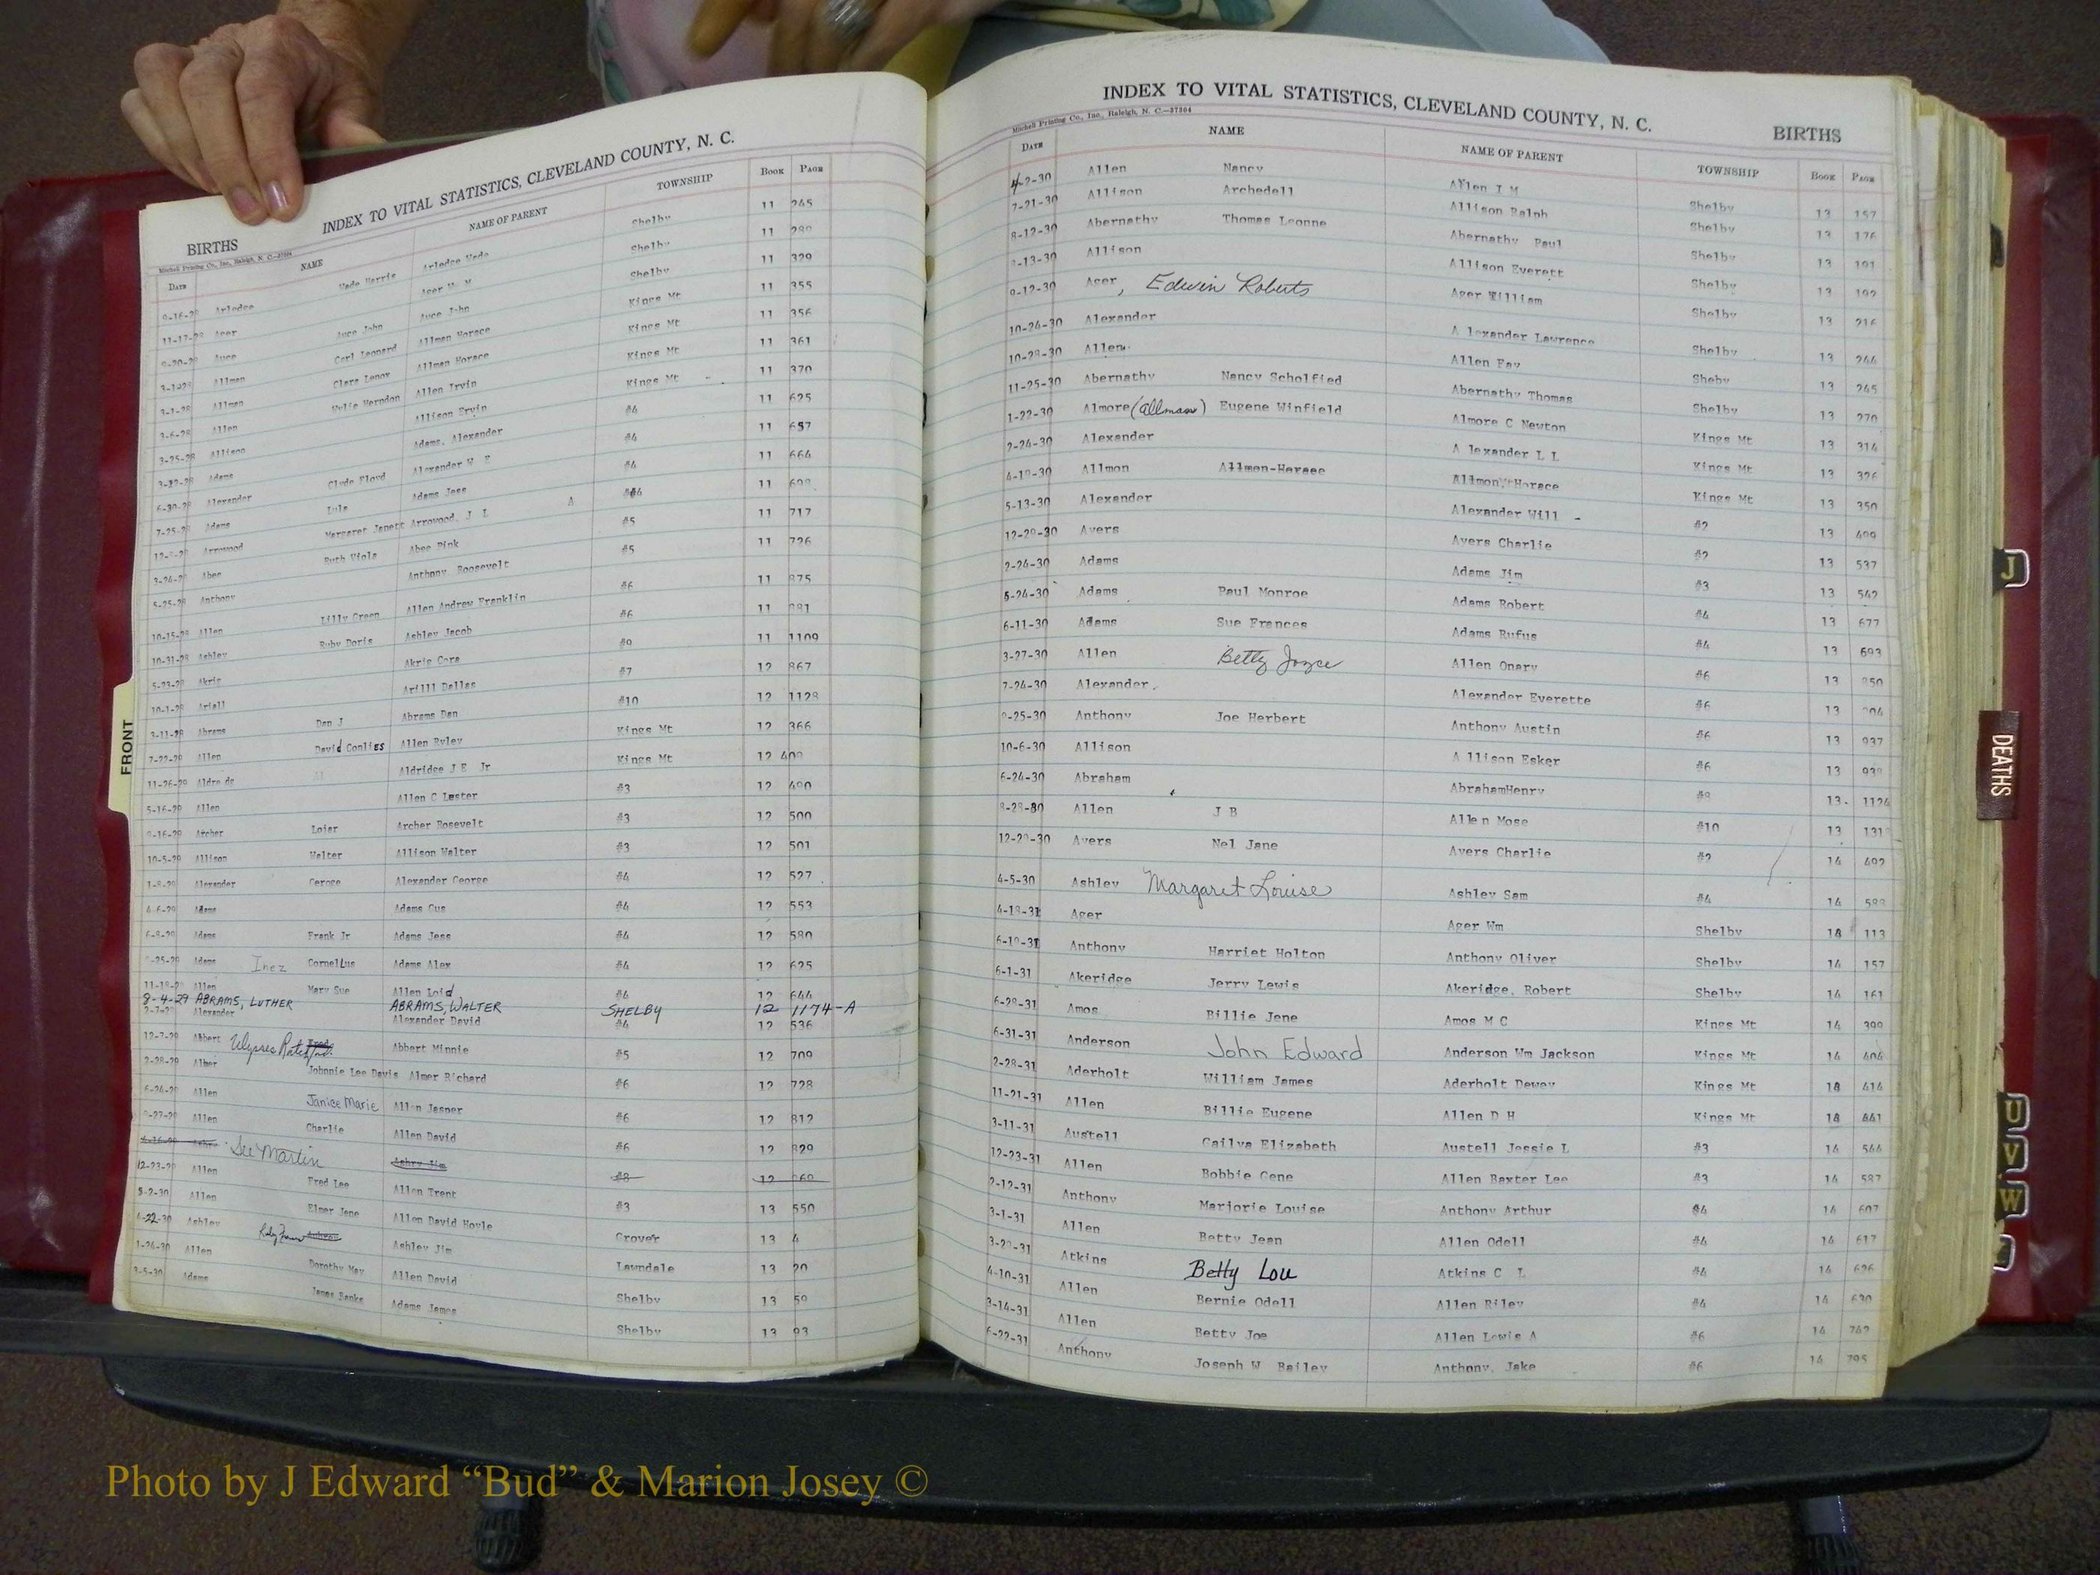 BIRTHS INDEX TO VITAL STATISTICS, CLEVELAND COUNTY, N. C.
Mitchell Printing Co., Inc., Raleigh, N. C.—37304
DATE NAME NAME OF PARENT TOWNSHIP BOOK PAGE
9-16-28 Arledge Wade Harris Arledge Wade Shelby 11 245
11-17-28 Ager Ager Shelby 11
9-20-28 Auce Auce John Auce John Shelby 11 329
Allman Carl Leonard Allman Horace Kings Mt 11 355
3-1-28 Allman Clara Lenox Allman Horace Kings Mt 11 356
3-6-28 Allen Herndon Allen Irvin Kings Mt 11 361
3-25-28 Allison Allison Ervin Kings Mt 11 370
Adams Adams, Alexander #4 11 625
6-30-28 Alexander Clyde Floyd Alexander W #4 11 657
7-25-28 Adams Lula Adams Jess #4 11 664
Arrowood Margaret Janett Arrowood, J L A #4 11
3-24-28 Abee Ruth Viola Abee Pink #5 11 717
5-25-28 Anthony Anthony, Roosevelt #5 11 726
10-15-28 Allen Lilly Green Allen Andrew Franklin #6 11 875
10-31-28 Ashley Ruby Doris Ashley Jacob #6 11
5-23-28 Akrig Akrig Cora #9 11 1109
10-1-28 Ariall Arilll Dallas #7 12 867
3-11-28 Abrams Dan J Abrams Dan #10 12 1128
Allen David Conlies Allen Ryley Kings Mt 12 366
11-26-29 Aldre de Aldridge J E Jr Kings Mt 12 409
5-16-29 Allen Allen C Lester #3 12 490
9-16-29 Archer Loier Archer Rosevelt #3 12 500
10-5-29 Allison Walter Allison Walter #3 12 501
1-8-29 Alexander Geroge Alexander George #4 12 527
4-6-29 Adams Adams Gus #4 12 553
6-8-29 Adams Frank Jr Adams Jess #4 12 580
Adams Inez Cornelius Adams Alex #4 12 625
11-18-29 Allen Mary Sue Allen Loid #4 12 644
8-4-29 ABRAMS, LUTHER ABRAMS, WALTER SHELBY 12 1174-A
Alexander Alexander David #4 12 536
12-7-29 Abbert Ulysses Abbert Minnie #5 12 709
2-28-29 Almer Johnnie Lee Davis Almer Richard #6 12 728
6-24-29 Allen Janice Marie Allen Jasper #6 12 812
9-27-29 Allen Charlie Allen David #6 12 829
See Martin Ashry Jim #8 12
12-23-29 Allen Fred Lee Allen Trent #3 13 550
5-2-30 Allen Elmer Jene Allen David Hoyle Grover 13 4
4-22-30 Ashley Ashley Jim Lawndale 13 20
1-24-30 Allen Dorothy May Allen David Shelby 13 59
3-5-30 Adams James Banks Adams James Shelby 13 93
INDEX TO VITAL STATISTICS, CLEVELAND COUNTY, N. C. BIRTHS
Mitchell Printing Co., Inc., Raleigh, N. C.—37304
DATE NAME NAME OF PARENT TOWNSHIP BOOK PAGE
4-2-30 Allen Nancy Allen J M Shelby 13 157
7-21-30 Allison Archedell Allison Ralph Shelby 13 176
8-12-30 Abernathy Thomas Leonne Abernathy Paul Shelby 13 191
Allison Allison Everett Shelby 13 192
9-12-30 Ager, Edwin Roberts Ager William Shelby 13 216
10-24-30 Alexander A lexander Lawrence Shelby 13 244
10-29-30 Allen Allen Fay Sheby 13 245
11-25-30 Abernathy Nancy Scholfied Abernathy Thomas Shelby 13 270
1-22-30 Almore (Allman) Eugene Winfield Almore C Newton Kings Mt 13 314
2-24-30 Alexander A lexander L L Kings Mt 13 326
4-19-30 Allmon Allmon Horace Allmon, Horace Kings Mt 13 350
5-13-30 Alexander Alexander Will #2 13 499
12-29-30 Ayers Ayers Charlie #2 13 537
2-24-30 Adams Adams Jim #3 13 542
5-24-30 Adams Paul Monroe Adams Robert #4 13 677
6-11-30 Adams Sue Frances Adams Rufus #4 13 693
3-27-30 Allen Betty Joyce Allen Onary #6 13 850
7-24-30 Alexander Alexander Everette #6 13 904
9-25-30 Anthony Joe Herbert Anthony Austin #6 13 937
10-6-30 Allison A llison Esker #6 13
6-24-30 Abraham AbrahamHenry #9 13 1124
8-28-30 Allen J B Allen Mose #10 13
12-29-30 Ayers Nel Jane Ayers Charlie #2 14 492
4-5-30 Ashley Margaret Louise Ashley Sam #4 14
4-18-31 Ager Ager Wm Shelby 14 113
6-19-31 Anthony Harriet Holton Anthony Oliver Shelby 14 157
6-1-31 Akeridge Jerry Lewis Akeridge, Robert Shelby 14 161
6-28-31 Amos Billie Jene Amos M C Kings Mt 14 399
6-31-31 Anderson John Edward Anderson Wm Jackson Kings Mt 14 404
2-28-31 Aderholt William James Aderholt Dewey Kings Mt 14 414
11-21-31 Allen Billie Eugene Allen D H Kings Mt 14 441
3-11-31 Austell Gailya Elizabeth Austell Jessie L #3 14 544
12-23-31 Allen Bobbie Gene Allen Baxter Lee #3 14 587
2-12-31 Anthony Marjorie Louise Anthony Arthur #4 14 607
3-1-31 Allen Betty Jean Allen Odell #4 14 617
3-29-31 Atkins Betty Lou Atkins C L #4 14 626
4-10-31 Allen Bernie Odell Allen Riley #4 14 630
3-14-31 Allen Betty Joe Allen Lewis A #6 14 742
6-22-31 Anthony Joseph W Bailey Anthony, Jake #6 14 795
FRONT
J
DEATHS
U
V
W
Photo by J Edward “Bud” & Marion Josey ©